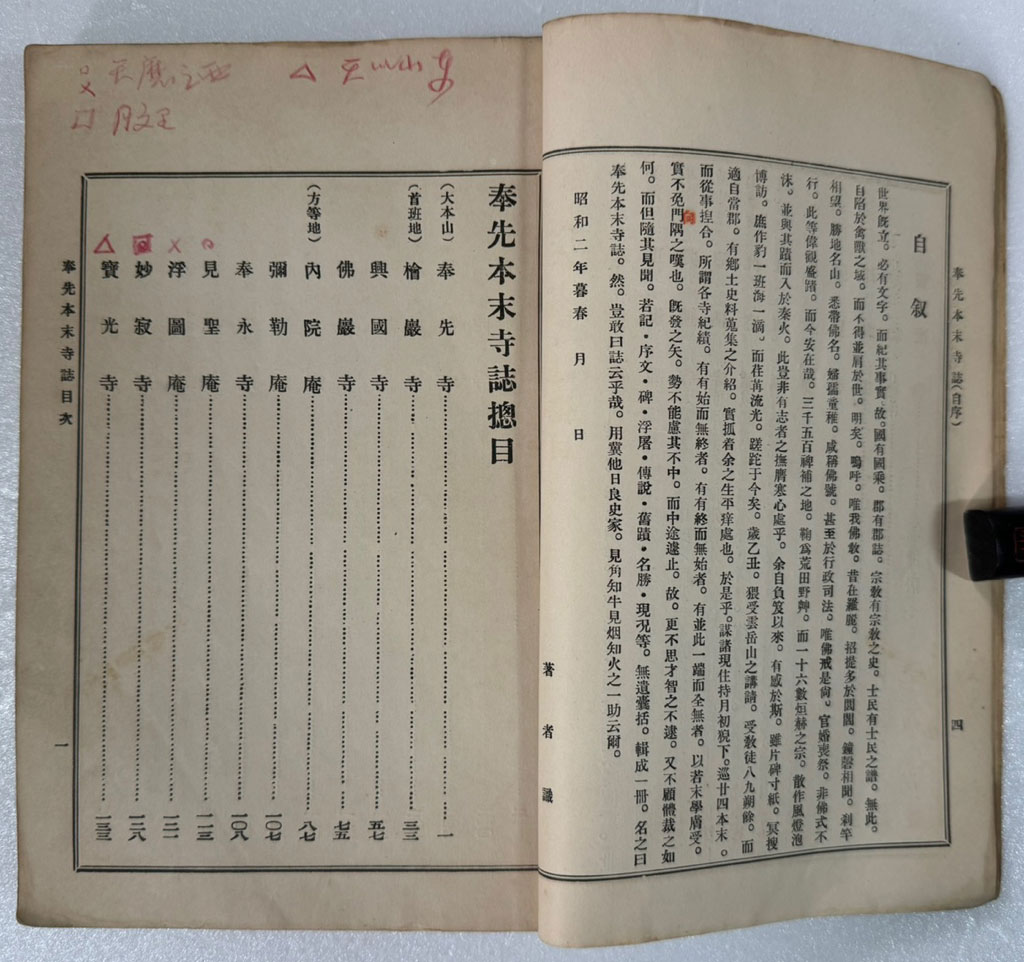 奉先本末寺誌(自序)
四
自叙
世界既立。必有文字。而紀其事實。故。國有國乘。郡有郡誌。宗敎有宗敎之史。士民有士民之譜。無此。
自陷於禽獸之域。而不得並肩於世。明矣。嗚呼。唯我佛敎。昔在羅麗。招提多於閭閻。鐘磬相聞。刹竿
相望。勝地名山。悉帶佛名。蟠孺童稚。咸稱佛號。甚至於行政司法。唯佛戒是尙。官婚喪祭。非佛式不
行。此等偉觀盛蹟。而今安在哉。三千五百裨補之地。鞠爲荒田野艸。而一十六數烜赫之宗。散作風燈泡
沫。並與其蹟而入於秦火。此豈非有志者之撫膺寒心處乎。余自負笈以來。有感於斯。雖片碑寸紙。冥搜
博訪。庶作豹一班海一滴。而荏苒流光。蹉跎于今矣。歲乙丑。猥受雲岳山之講請。受敎徒八九朔餘。而
適自當郡。有鄕土史料蒐集之介紹。實抓着余之生平痒處也。於是乎。謀諸現住持月初稅下。巡廿四本末。
而從事揑合。所謂各寺紀績。有有始而無終者。有有終而無始者。有並此一端而全無者。以若末學膚受。
實不免門隅之嘆也。旣發之矢。勢不能慮其不中。而中途遽止。故。更不思才智之不逮。又不顧體裁之如
何。而但隨其見聞。若記・序文・碑・浮屠・傳說・舊蹟・名勝・現况等。無遺囊括。輯成一冊。名之曰
奉先本末寺誌。然。豈敢曰誌云乎哉。用冀他日良史家。見角知牛見烟知火之一助云爾。
昭和二年暮春 月 日
著者識
奉先本末寺誌摠目
(大本山)奉先寺 一
(首班地)檜巖寺 三三
興國寺 五七
佛巖寺 七五
(方等地)內院庵 八七
彌勒庵 一〇七
奉永寺 一〇八
見聖庵 一一三
浮圖庵 一二一
妙寂寺 一二八
寶光寺 一三三
奉先本末寺誌目次
一